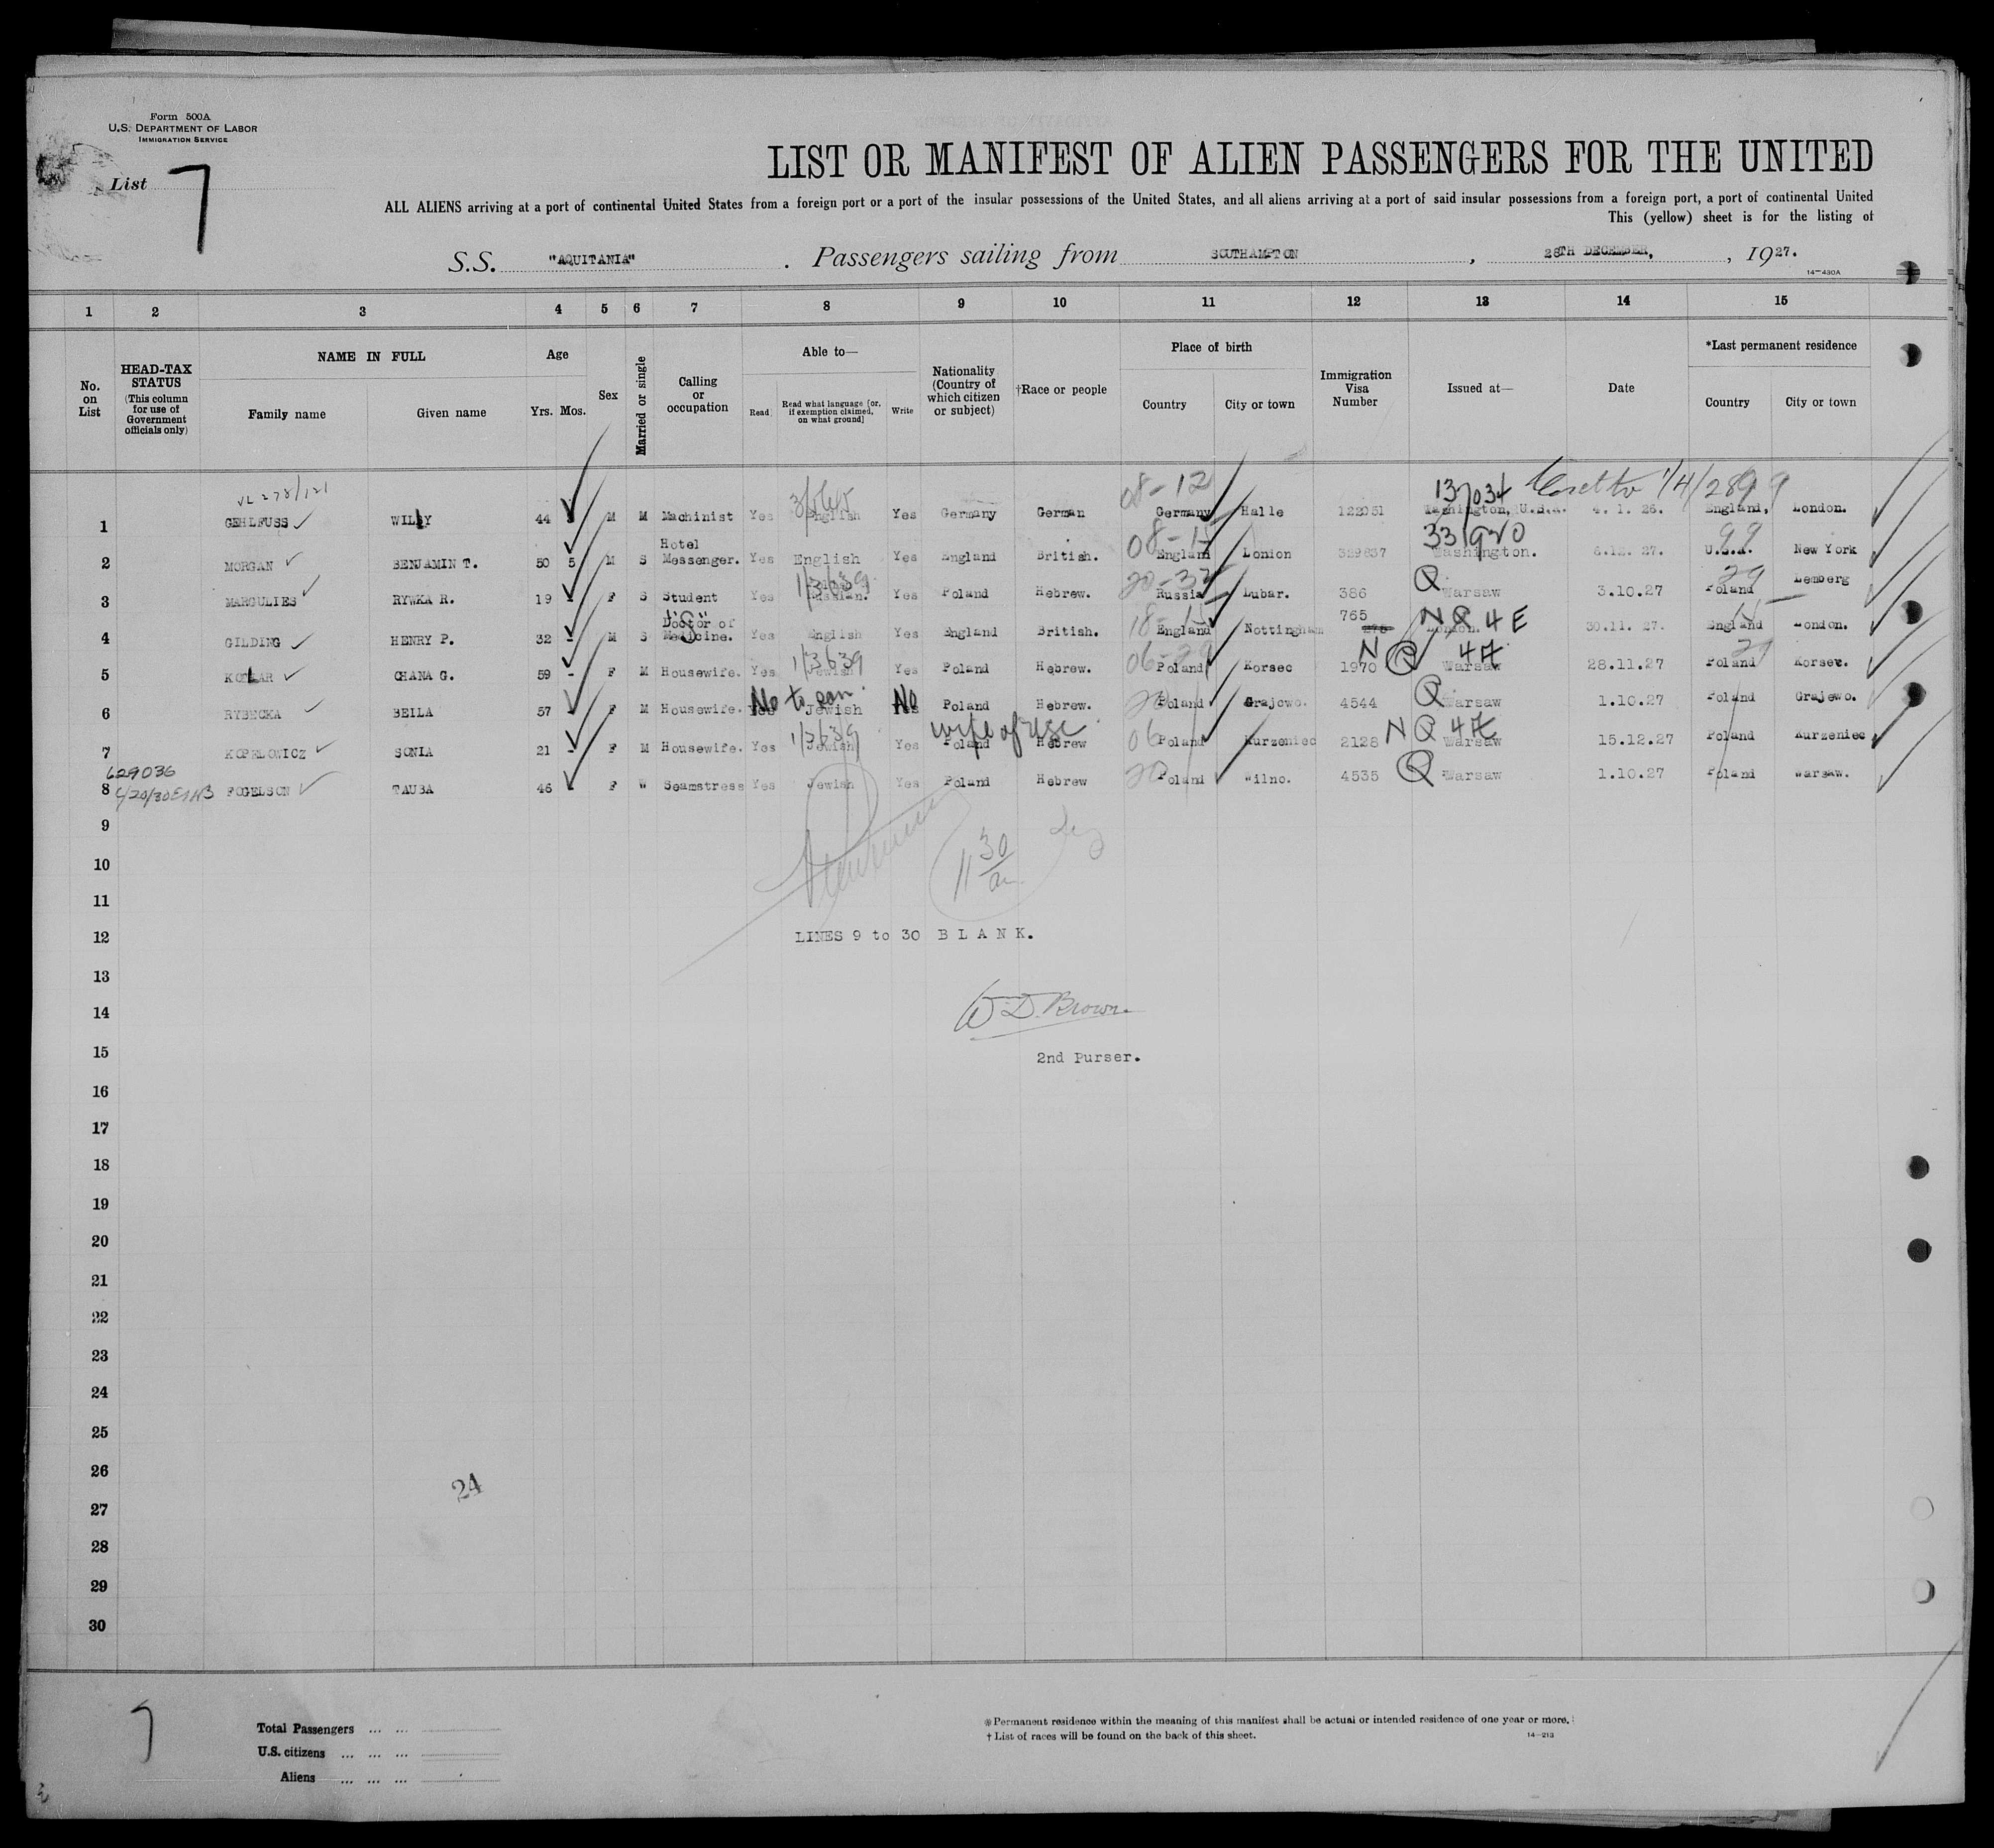 Form 500A
U.S. DEPARTMENT OF LABOR
IMMIGRATION SERVICE
List 7
LIST OR MANIFEST OF ALIEN PASSENGERS FOR THE UNITED
ALL ALIENS arriving at a port of continental United States from a foreign port or a port of the insular possessions of the United States, and all aliens arriving at a port of said insular possessions from a foreign port, a port of continental United
This (yellow) sheet is for the listing of
S.S. "AQUITANIA" . Passengers sailing from SOUTHAMPTON , 28TH DECEMBER, , 1927.
14—430A
1 2 3 4 5 6 7 8 9 10 11 12 13 14 15
No. on List HEAD-TAX STATUS (This column for use of Government officials only) NAME IN FULL Family name Given name Age Yrs. Mos. Sex Married or single Calling or occupation Able to— Read Read what language [or, if exemption claimed, on what ground] Write Nationality (Country of which citizen or subject) †Race or people Place of birth Country City or town Immigration Visa Number Issued at— Date *Last permanent residence Country City or town
VL 278/121 08-12 137034 1/4/28 99
1 GEHLFUSS WILLY 44 M M Machinist Yes English Yes Germany German Germany Halle 122051 Washington, U.S.A. 4. 1. 26. England, London.
08-15 331920 99
2 MORGAN BENJAMIN T. 50 5 M S Hotel Messenger. Yes English Yes England British. England London 329837 Washington. 6.12. 27. U.S.A. New York
1/3639 20-32 Q 29
3 MARGULIES RYWKA R. 19 - F S Student Yes Russian. Yes Poland Hebrew. Russia Lubar. 386 Warsaw 3.10.27 Poland Lemberg
"S" 18-15 NQ 4E 15
4 GILDING HENRY P. 32 - M S Doctor of Medicine. Yes English Yes England British. England Nottingham 765 London. 30.11. 27. England London.
1/3639 06-29 N Q 47 29
5 KOTLAR CHANA G. 59 - F M Housewife. Yes Jewish Yes Poland Hebrew. Poland Korsec 1970 Warsaw 28.11.27 Poland Korsec.
No No 20 Q
6 RYBECKA BEILA 57 F M Housewife. Yes Jewish Yes Poland Hebrew. Poland Grajewo. 4544 Warsaw 1.10.27 Poland Grajewo.
1/3639 wife of USC 06 NQ 47
7 KOPELOWICZ SONIA 21 - F M Housewife. Yes Jewish Yes Poland Hebrew Poland Kurzeniec 2128 Warsaw 15.12.27 Poland Kurzeniec
629036 20 Q
8 FOGELSON TAUBA 46 F W Seamstress Yes Jewish Yes Poland Hebrew Poland Wilno. 4535 Warsaw 1.10.27 Poland Warsaw.
9
10 11 30 am
11
12 LINES 9 to 30 B L A N K.
13
14 W D. Brown.
15 2nd Purser.
16
17
18
19
20
21
22
23
24
25
26 24
27
28
29
30
7
Total Passengers ... ...
U.S. citizens ... ... ...
Aliens ... ... ...
*Permanent residence within the meaning of this manifest shall be actual or intended residence of one year or more.
† List of races will be found on the back of this sheet.
14—213